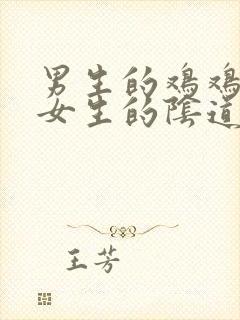 男生的鸡鸡
女生的陰道
王芳